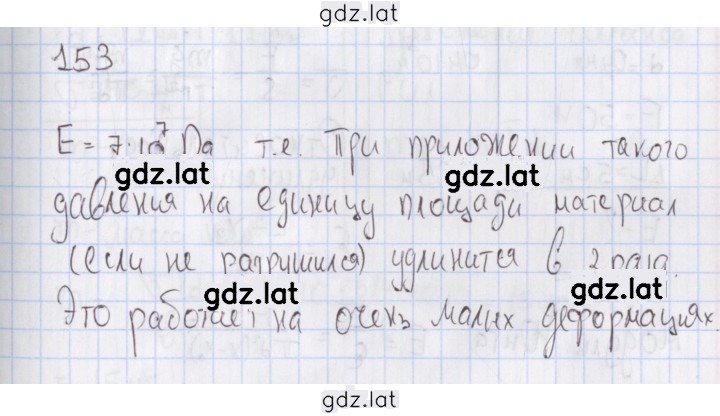 gdz.lat
153
E = 7·10⁷ Па т.е. При приложении такого
gdz.lat
gdz.lat
давления на единицу площади материал
(если не разрушился) удлинится в 2 раза.
gdz.lat
gdz.lat
Это работает на очень малых деформациях
gdz.lat